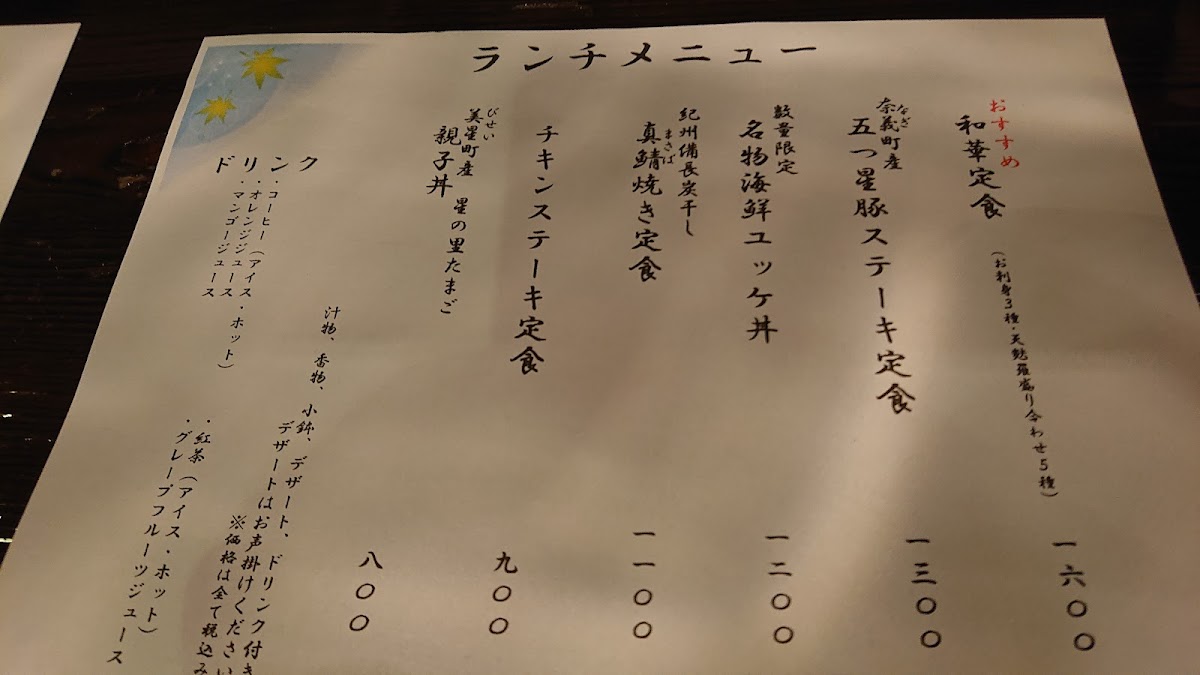 ランチメニュー
おすすめ
和華定食
(お刺身3種・天麩羅盛り合わせ5種)
一六〇〇
なぎ
奈義町産
五つ星豚ステーキ定食
一三〇〇
数量限定
名物海鮮ユッケ丼
一二〇〇
紀州備長炭干し
まさば
真鯖焼き定食
一一〇〇
チキンステーキ定食
九〇〇
びせい
美星町産 星の里たまご
親子丼
八〇〇
汁物、香物、小鉢、デザート、ドリンク付き
デザートはお声掛けください
※価格は全て税込み
ドリンク
・コーヒー(アイス・ホット)
・オレンジジュース
・マンゴージュース
・紅茶(アイス・ホット)
・グレープフルーツジュース